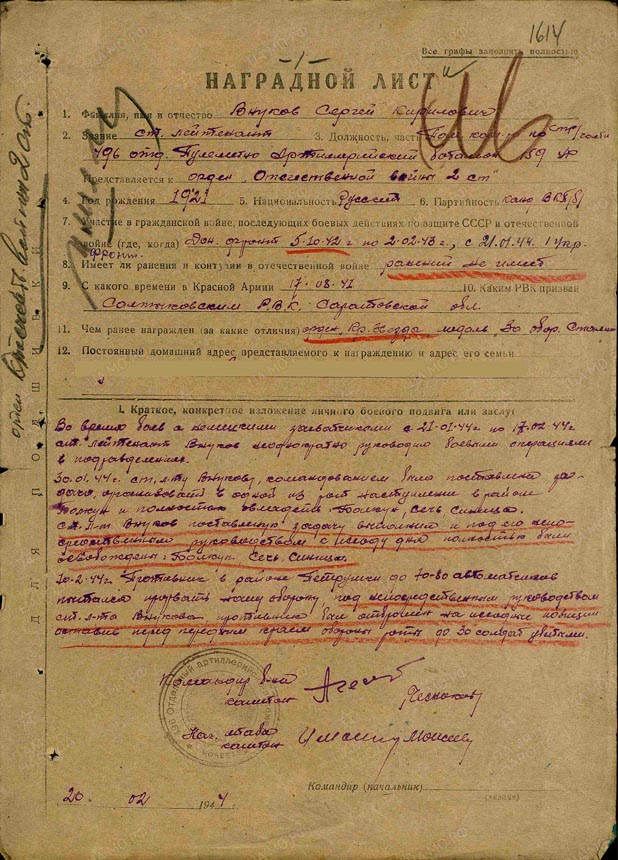 1614
Все графы заполнять полностью
НАГРАДНОЙ ЛИСТ
1. Фамилия, имя и отчество Внуков Сергей Кирилович
2. Звание ст. лейтенант 3. Должность, часть Пом. ком. б-на по стр/части
196 отд. Пулеметно Артиллерийский батальон 159 УР
Представляется к орден „Отечественной войны 2 ст"
4. Год рождения 1921 5. Национальность Русский 6. Партийность канд. ВКП(б)
7. Участие в гражданской войне, последующих боевых действиях по защите СССР и отечественной
войне (где, когда) Дон. фронт 5-10-42 г по 2-02-43 г, с 21.01.44. 1 Укр.
фронт.
8. Имеет ли ранения и контузии в отечественной войне ранений не имеет
9. С какого времени в Красной Армии 17-08-41 10. Каким РВК призван
Салтыковским РВК. Саратовской обл.
11. Чем ранее награжден (за какие отличия) орден Кр. Звезда медаль „За обор. Сталин
12. Постоянный домашний адрес представляемого к награждению и адрес его семьи
I. Краткое, конкретное изложение личного боевого подвига или заслуг
Во время боев с немецкими захватчиками с 21-01-44г по 17.02.44г
ст. лейтенант Внуков неоднократно руководил боевыми операциями
в подразделении.
30.01.44г. ст. л-ту Внукову, командованием было поставлена за-
дача, организовать в одной из рот наступление в районе
и полностью овладеть Сечь, Синица.
Ст. л-т Внуков поставленную задачу выполнил и под его непо-
средственным руководством с исходу дня полностью были
освобождены: Сечь Синица.
10-2-44г. Противник в районе Петрушки до 70-80 автоматчиков
пытался прорвать нашу оборону под непосредственным руководством
ст. л-та Внукова, противник был отброшен на исходные позиции
оставив перед передним краем обороны роты до 30 солдат убитыми.
Командир б-на
капитан Чесноков
Нач. штаба
капитан Моисеев
20. 02 1944
Командир (начальник)
ДЛЯ ПОДШИВКИ
орден Отечествен войны 2 степ.